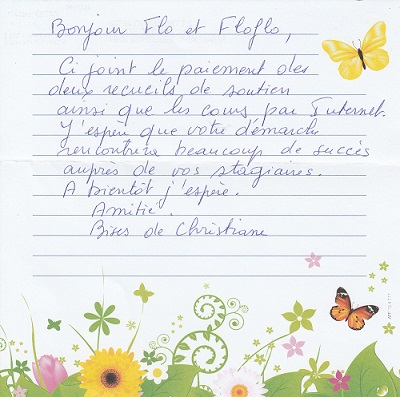 Bonjour Flo et Floflo,
Ci joint le paiement des
deux recueils de soutien
ainsi que les cours par Internet.
J'espère que votre démarche
rencontrera beaucoup de succès
auprès de vos stagiaires.
A bientôt j'espère.
Amitié.
Bises de Christiane